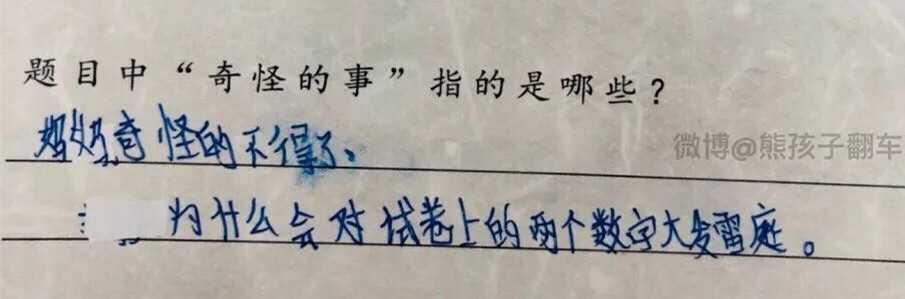 题目中“奇怪的事”指的是哪些？
奶奶奇怪的不得了、
微博@熊孩子翻车
为什么会对试卷上的两个数字大发雷庭。